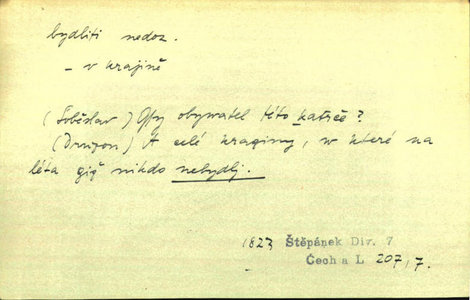 bydliti nedok.
– v krajině
(Soběslav) Gsy obywatel této katrče?
(Drnzon) A celé kraginy, w které na
léta giž nikdo nebydlj.
1823 Štěpánek Div. 7
Čech a L 207, 7.